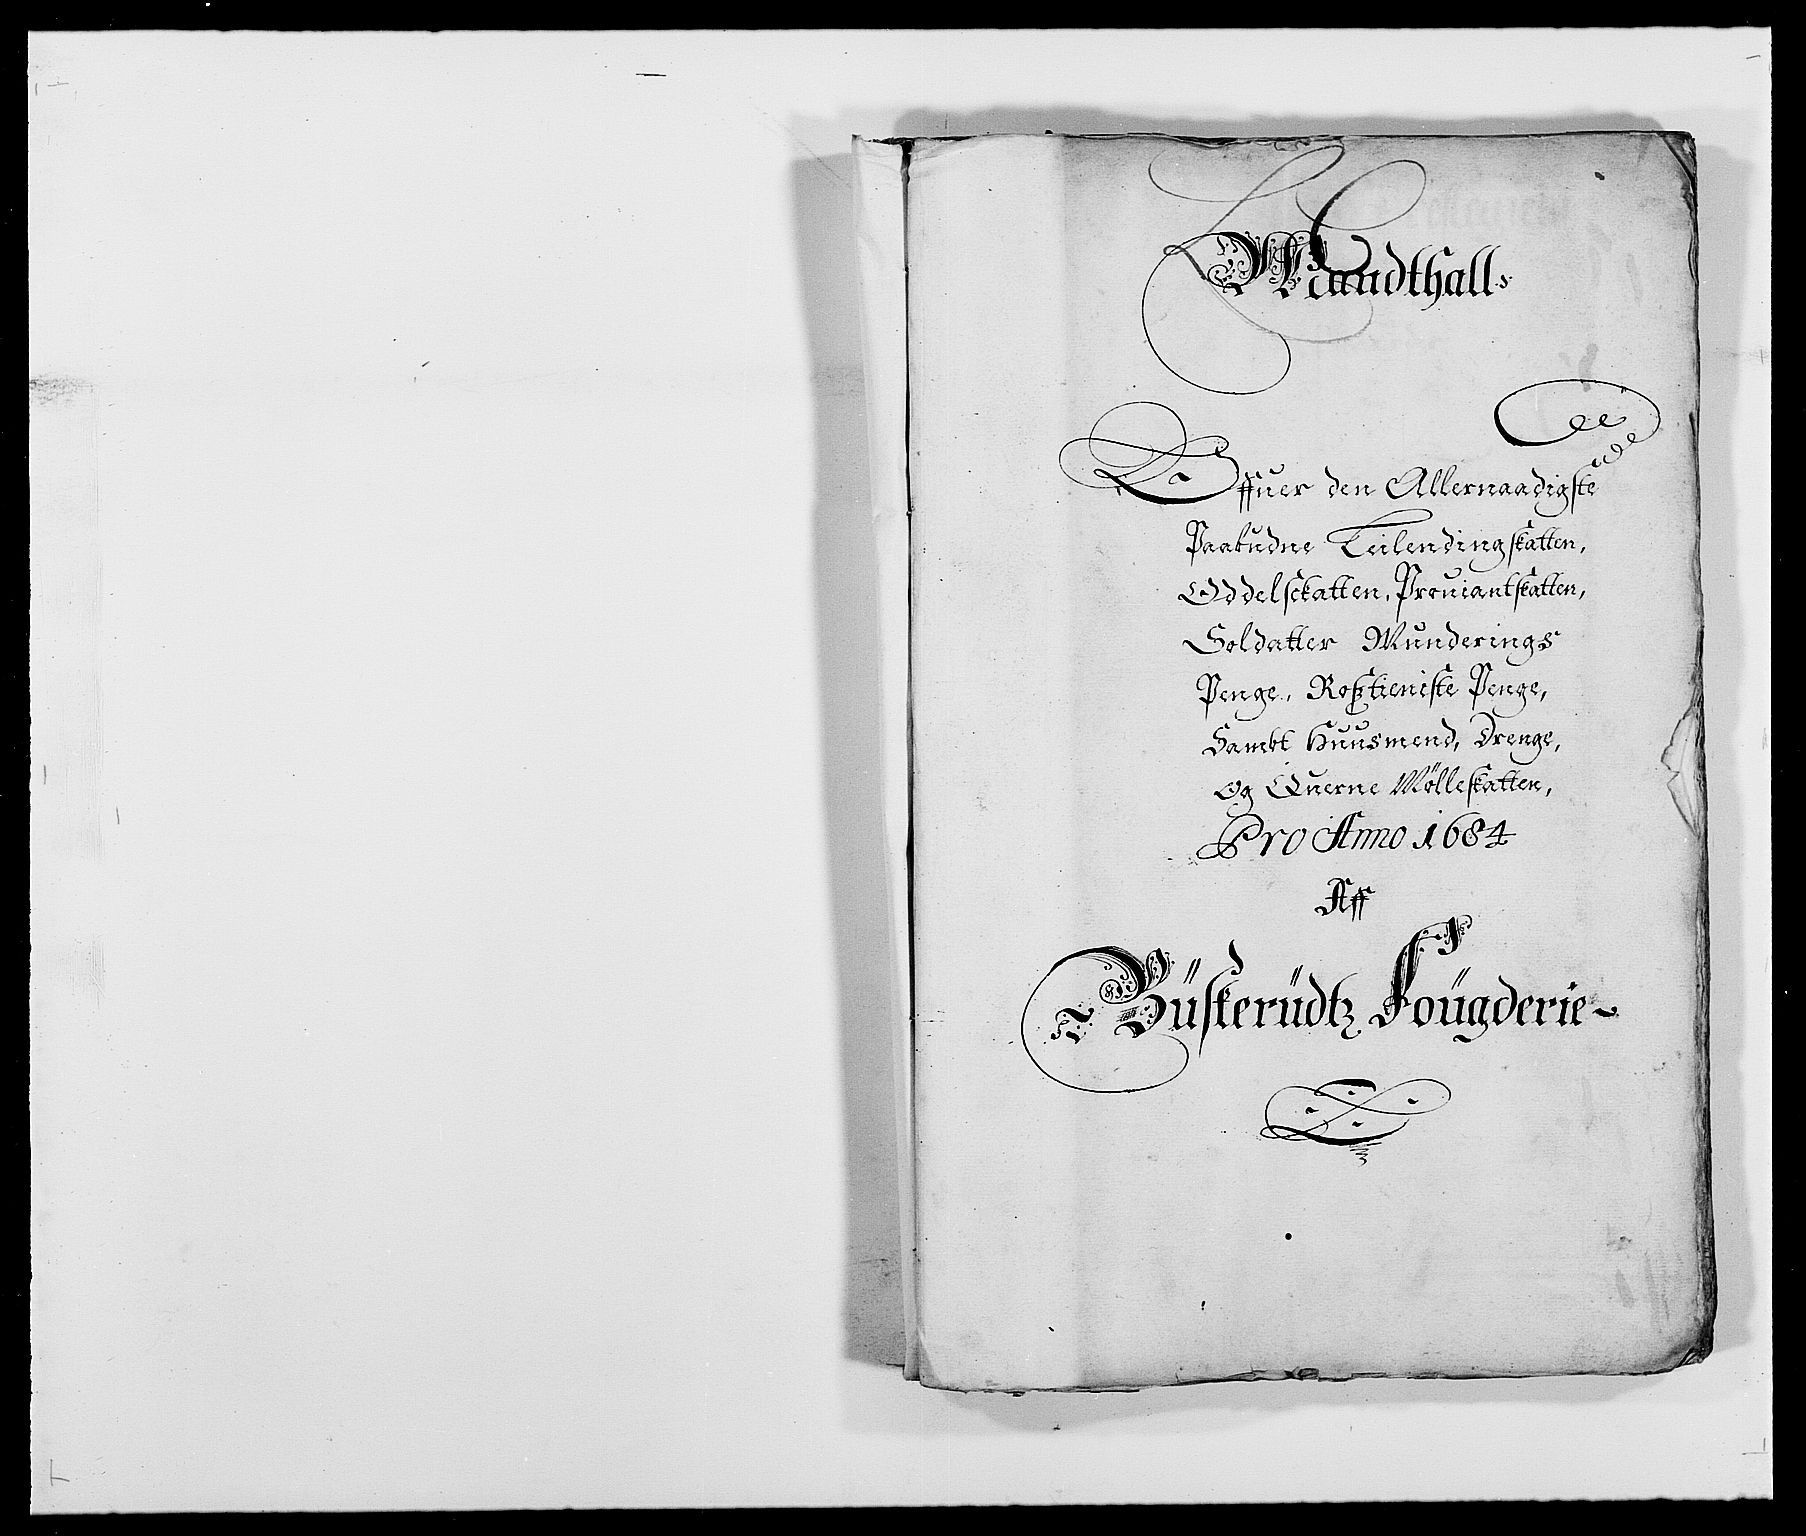 Mandthall
Offuer den Allernaadigste
Paabudne Leilendingskatten,
Oddelsckatten, Prouiantskatten,
Soldatter Munderings
Penge, Roßtieniste Penge,
Sambt Huusmend, Drenge,
Og Querne Mölleskatten,
Pro Anno 1684
Aff
Büskerüdtz Foügderie